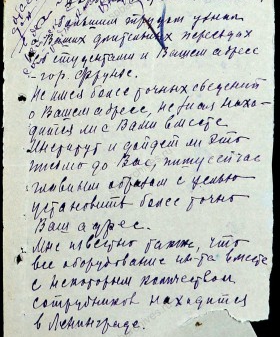 большим трудом узнал
Ваших длительных переездах
со студентами и Вашем адресе
гор. Фрунзе.
Не имея более точных сведений
о Вашем адресе, не зная нахо-
дится ли с Вами вместе
Институт и дойдет ли это
письмо до Вас, пишу сейчас
главным образом с целью
установить более точно
Ваш адрес.
Мне известно также, что
все оборудование ин-та вместе
с некоторым количеством
сотрудников находится
в Ленинграде.